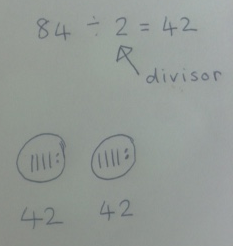 84 ÷ 2 = 42
divisor
42 42